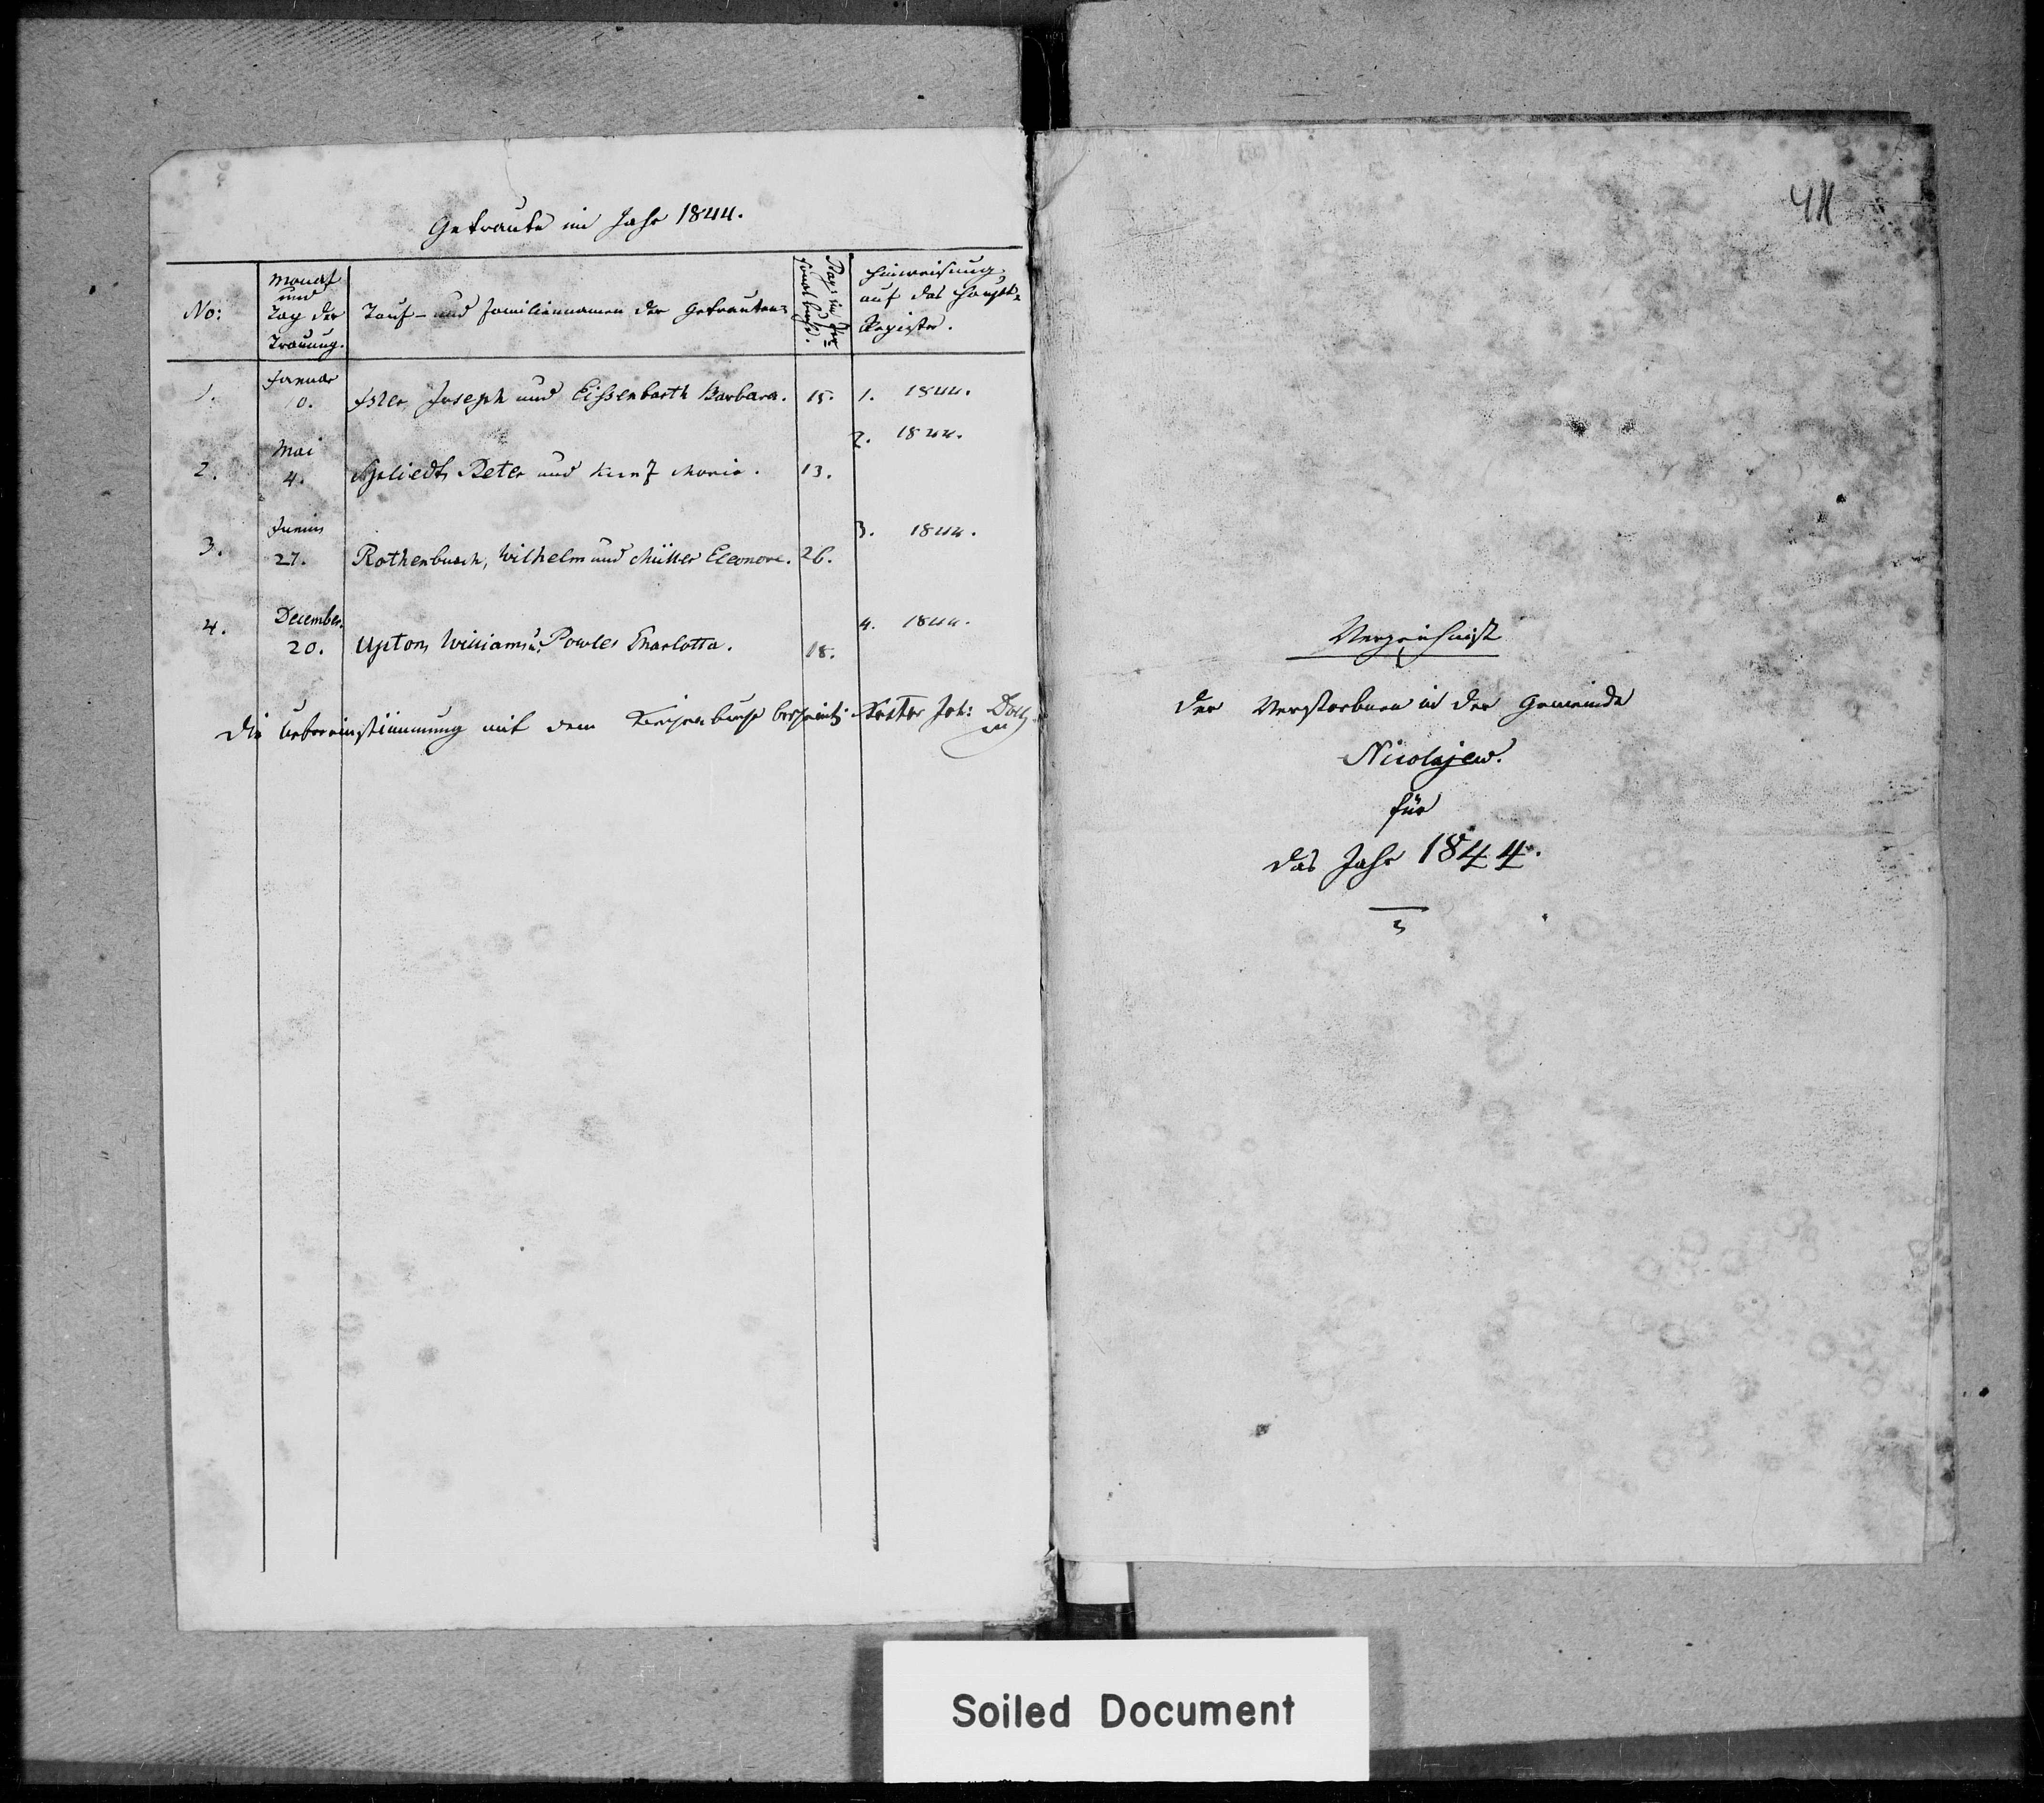 Getraute im Jahr 1844.
No:
Monat
und
Tag der
Trauung.
Tauf- und Familiennamen der Getrauten:
Pag: im Per=
sonalbuch.
Hinweisung
auf das Haupt=
Register.
1.
Januar
10.
Joseph und Eißenbarth Barbara.
15.
1. 1844.
2.
Mai
4.
Peter und Kunz Maria.
13.
2. 1844.
3.
Junius
27.
Rothenbusch, Wilhelm und Müller Eleonore.
26.
3. 1844.
4.
December.
20.
Upton, William u. Powles Charlotta.
18.
4. 1844.
Die Uebereinstimmung mit dem Kirchenbuche bescheint: Pastor Joh:
Verzeichnist
der Verstorbnen in der Gemeinde
Nicolajew.
für
das Jahr 1844.
Soiled Document